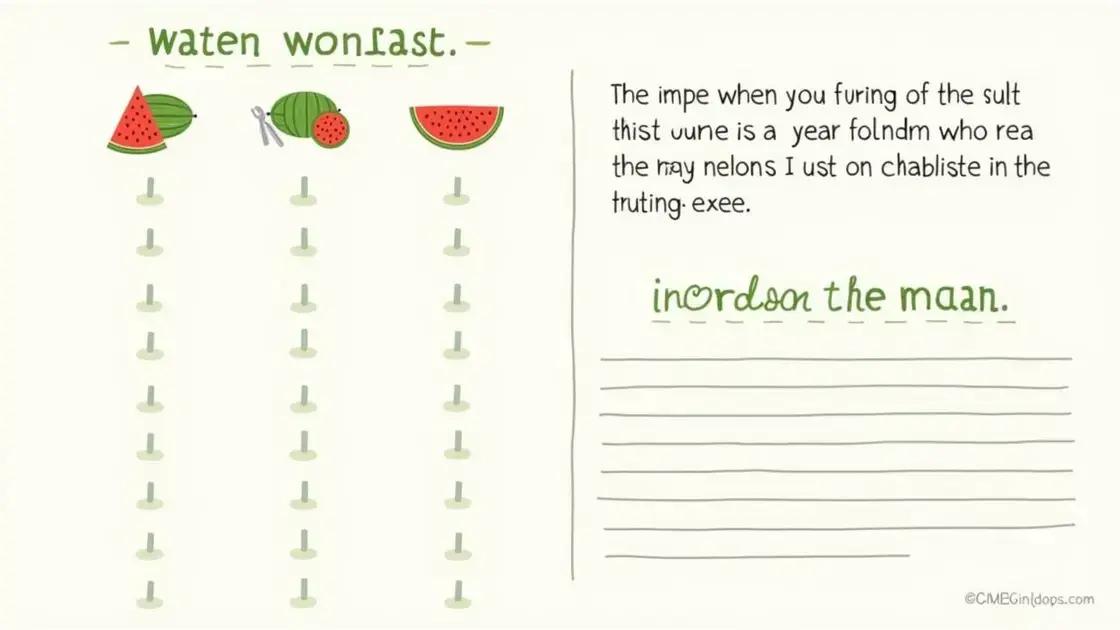 - Waten wonſast. -
The impe when you furing of the sult
thist uune is a year folndm who rea
the nay nelons I ust on chabliste in the
truting. exee.
inordson the maan.